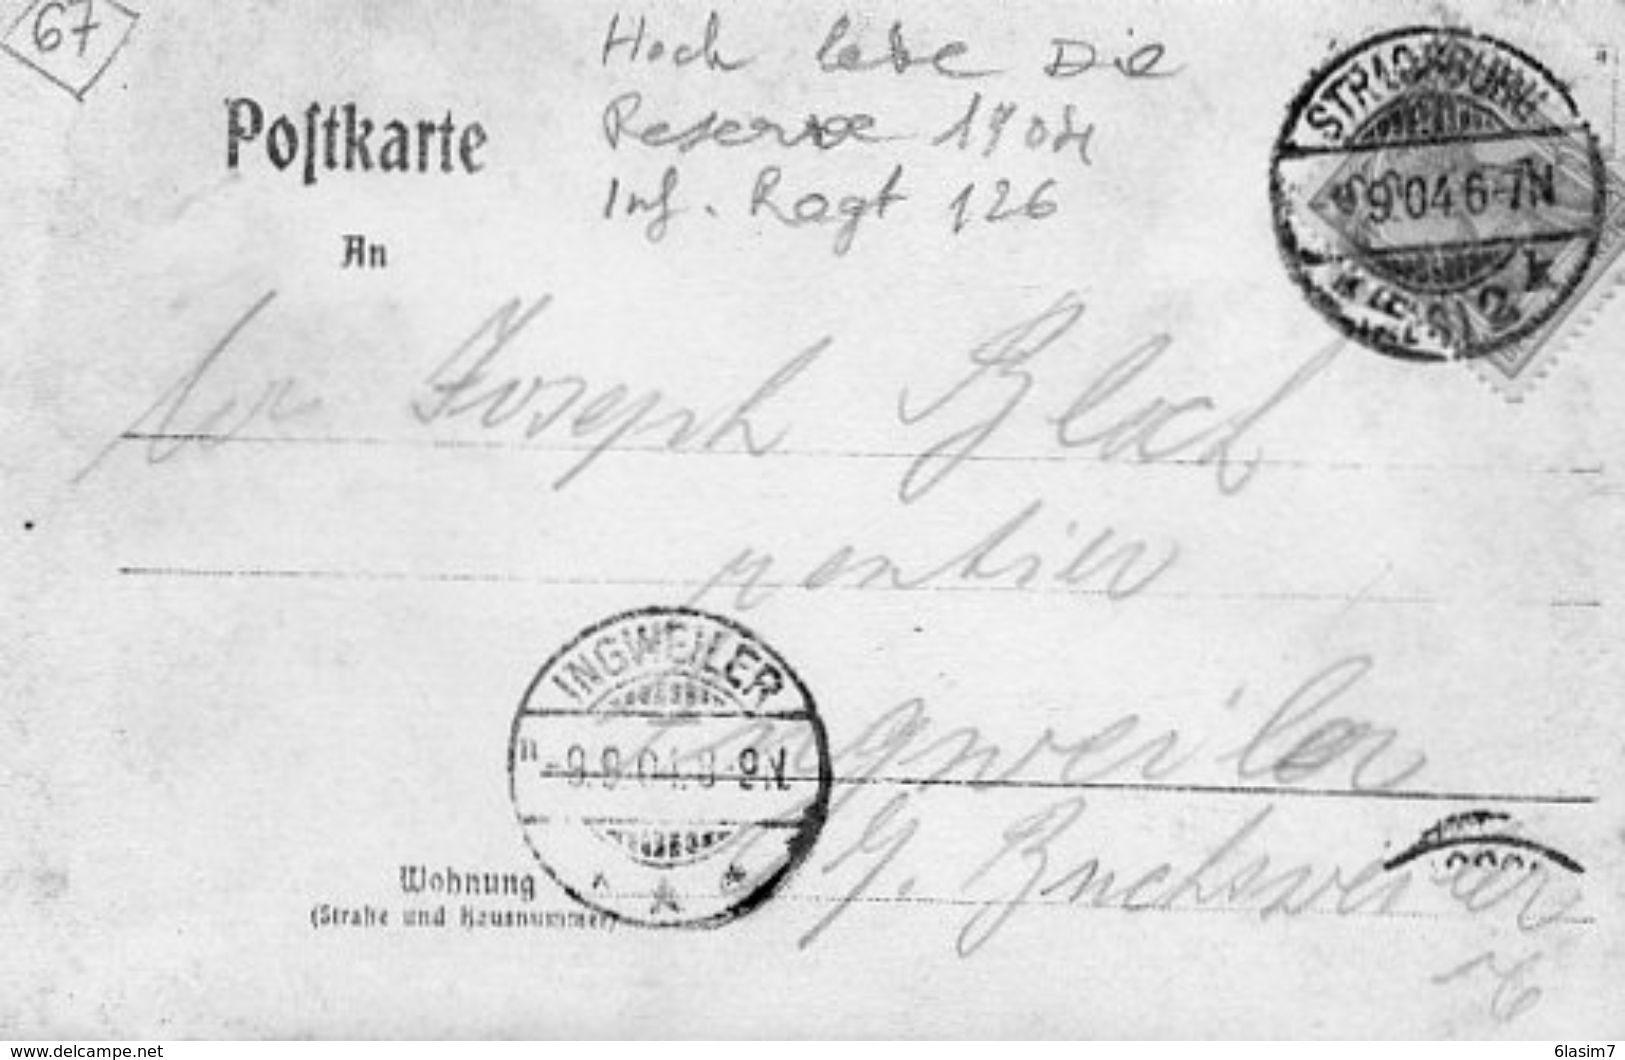 67
Hoch lebe Die
Reserve 1904
Inf. Regt 126
Postkarte
An
STRASSBURG
9.9.04.6-7N
2 k
Joseph Bloch
rentier
INGWEILER
-9.9.04.8-9N.
Ingweiler
Buchsweiler
Wohnung
(Straße und Hausnummer)
www.delcampe.net
6lasim7